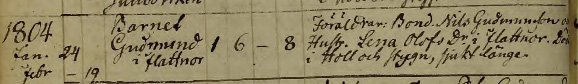 1804 Barnet Föräldrar: Bond. Nils Gudmundson
Jan. 24 Gudmund 1 6 - 8 Hustr. Lena Olofs Dr. i Flattnor.
Febr - 19 i Flattnor i Håll och styng, sjukt länge.